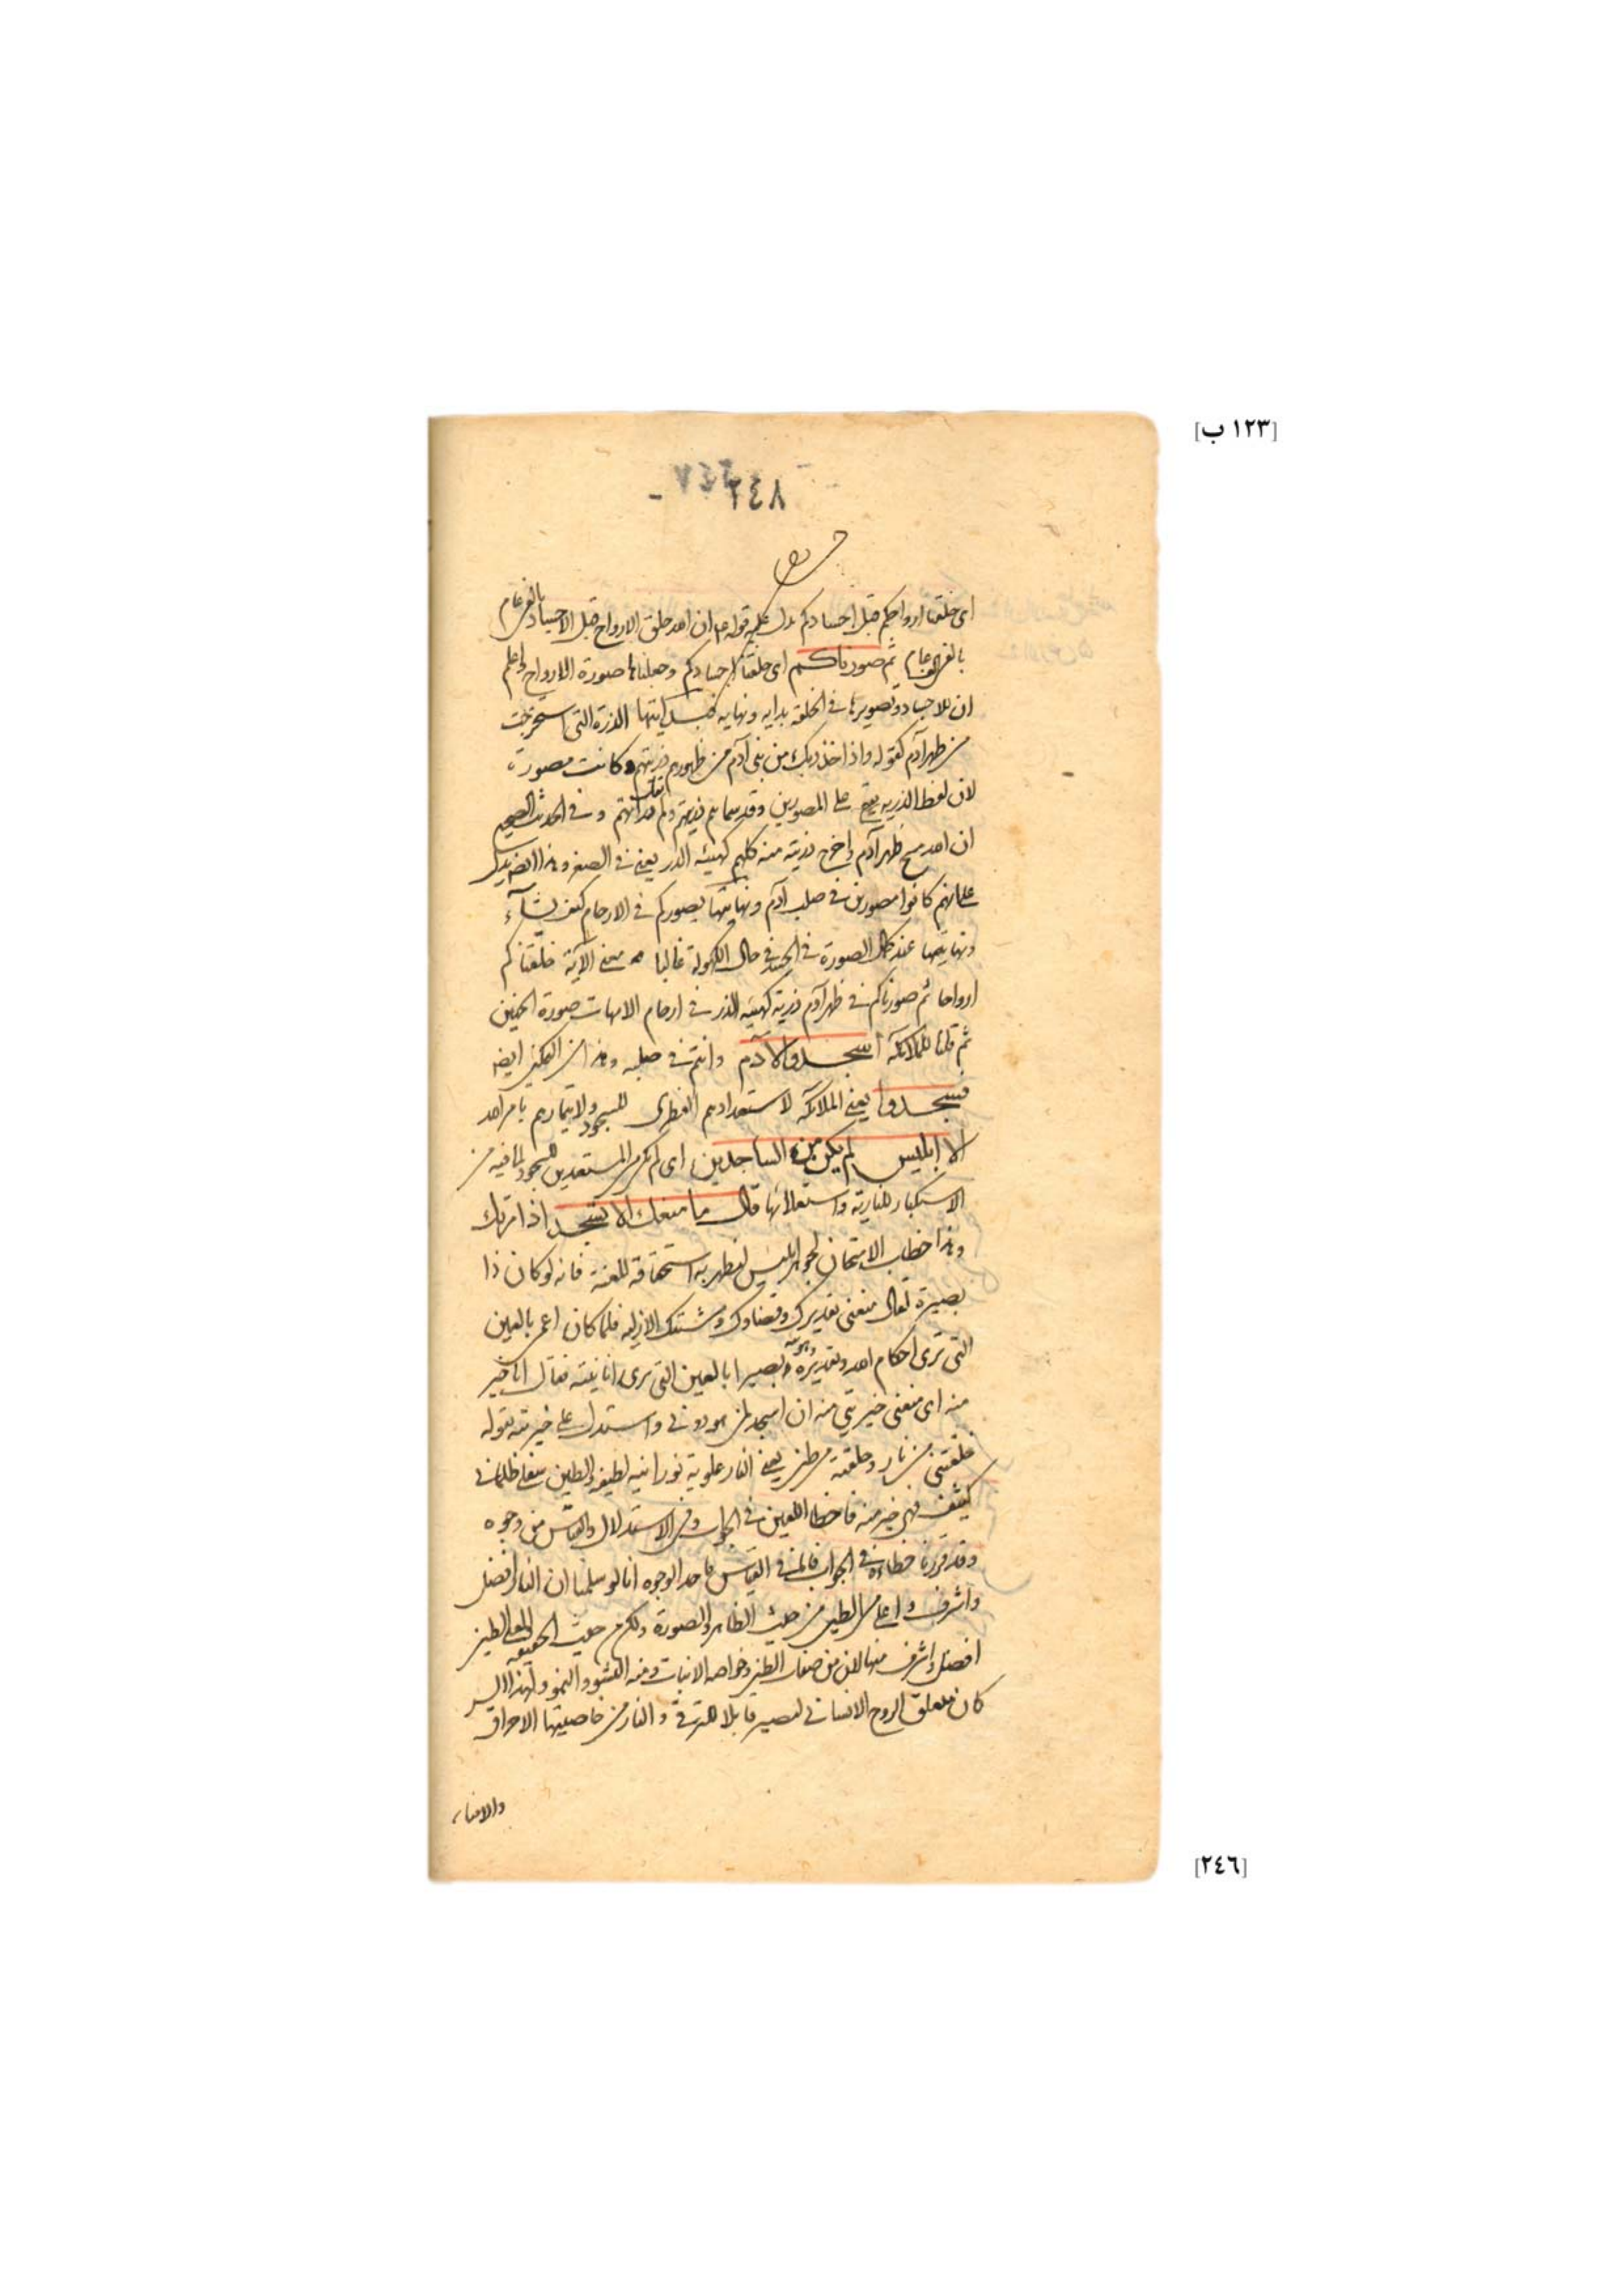 [١٢٣ ب]
٢٤٨
اى خلقنا ارواحكم قبل اجسادكم يدل عليه قوله ان الله خلق الارواح قبل الاجساد بالفى عام
بالفى عام ثم صورناكم اى خلقنا اجسادكم وجعلناها صورة الارواح واعلم
ان للاجساد وتصويرها فى الخلقة بداية ونهاية الذرة التى استخرجت
من ظهر آدم كقوله واذ اخذ ربك من بنى آدم من ظهورهم ذريتهم وكانت مصورة
لان لفظ الذرية يقع على المصورين وقد سماهم ذريتهم ولم يقل ذراتهم وفى الحديث الصحيح
ان الله مسح ظهر آدم واخرج ذريته منه كلهم كهيئة الذر يعنى فى الصغر وهذا ايضا يدل
على انهم كانوا مصورين فى صلب آدم يصوركم فى الارحام كيف يشآء
ونهايتها عند كمال الصورة فى حال الكهولة غالبا معنى الآية خلقناكم
ارواحا ثم صورناكم فى ظهر آدم ذرية كهيئة الذر فى ارحام الامهات صورة الجنين
ثم قلنا للملائكة اسجدوا لآدم وانتم فى صلبه وهذا من ايضا
فسجدوا يعنى الملائكة لاستعدادهم الفطرى للسجود ولايتمارهم بامر الله
الا ابليس لم يكن من الساجدين اى لم يكن من المستعدين للسجود لما فيه من
الاستكبار للنارية واستعلائها قال ما منعك الا تسجد اذ امرتك
وهذا خطاب الامتحان لجوهر ابليس ليظهر به استحقاقه للعنة فانه لو كان ذا
بصيرة لقال منعنى تقديرك وقضاؤك ومشيتك الازلية فلما كان اعمى بالعين
التى ترى احكام الله وتقديره وبصيرا بالعين التى ترى انانيته فقال انا خير
منه اى منعنى خيريتى منه ان اسجد لمن هو دونى واستدل على خيريته بقوله
خلقتنى من نار وخلقته من طين يعنى النار علوية نورانية لطيفة والطين سفلى ظلمانى
كثيف فهى خير منه فاخطأ اللعين فى الجواب وفى الاستدلال والقياس من وجوه
وقد قررنا خطاءه فى الجواب فاما فى القياس فاحد الوجوه انا لو سلمنا ان النار افضل
واشرف واعلى من الطين من حيث الظاهر والصورة ولكن من حيث الحقيقة والمعنى الطين
افضل واشرف منها لان من صفات الطين وخواصه الانبات ومنه النشو والنمو ولهذا السر
كان تعلق الروح الانسانى ليصير قابلا للترقى والنار من خاصيتها الاحراق
والافناء
[٢٤٦]